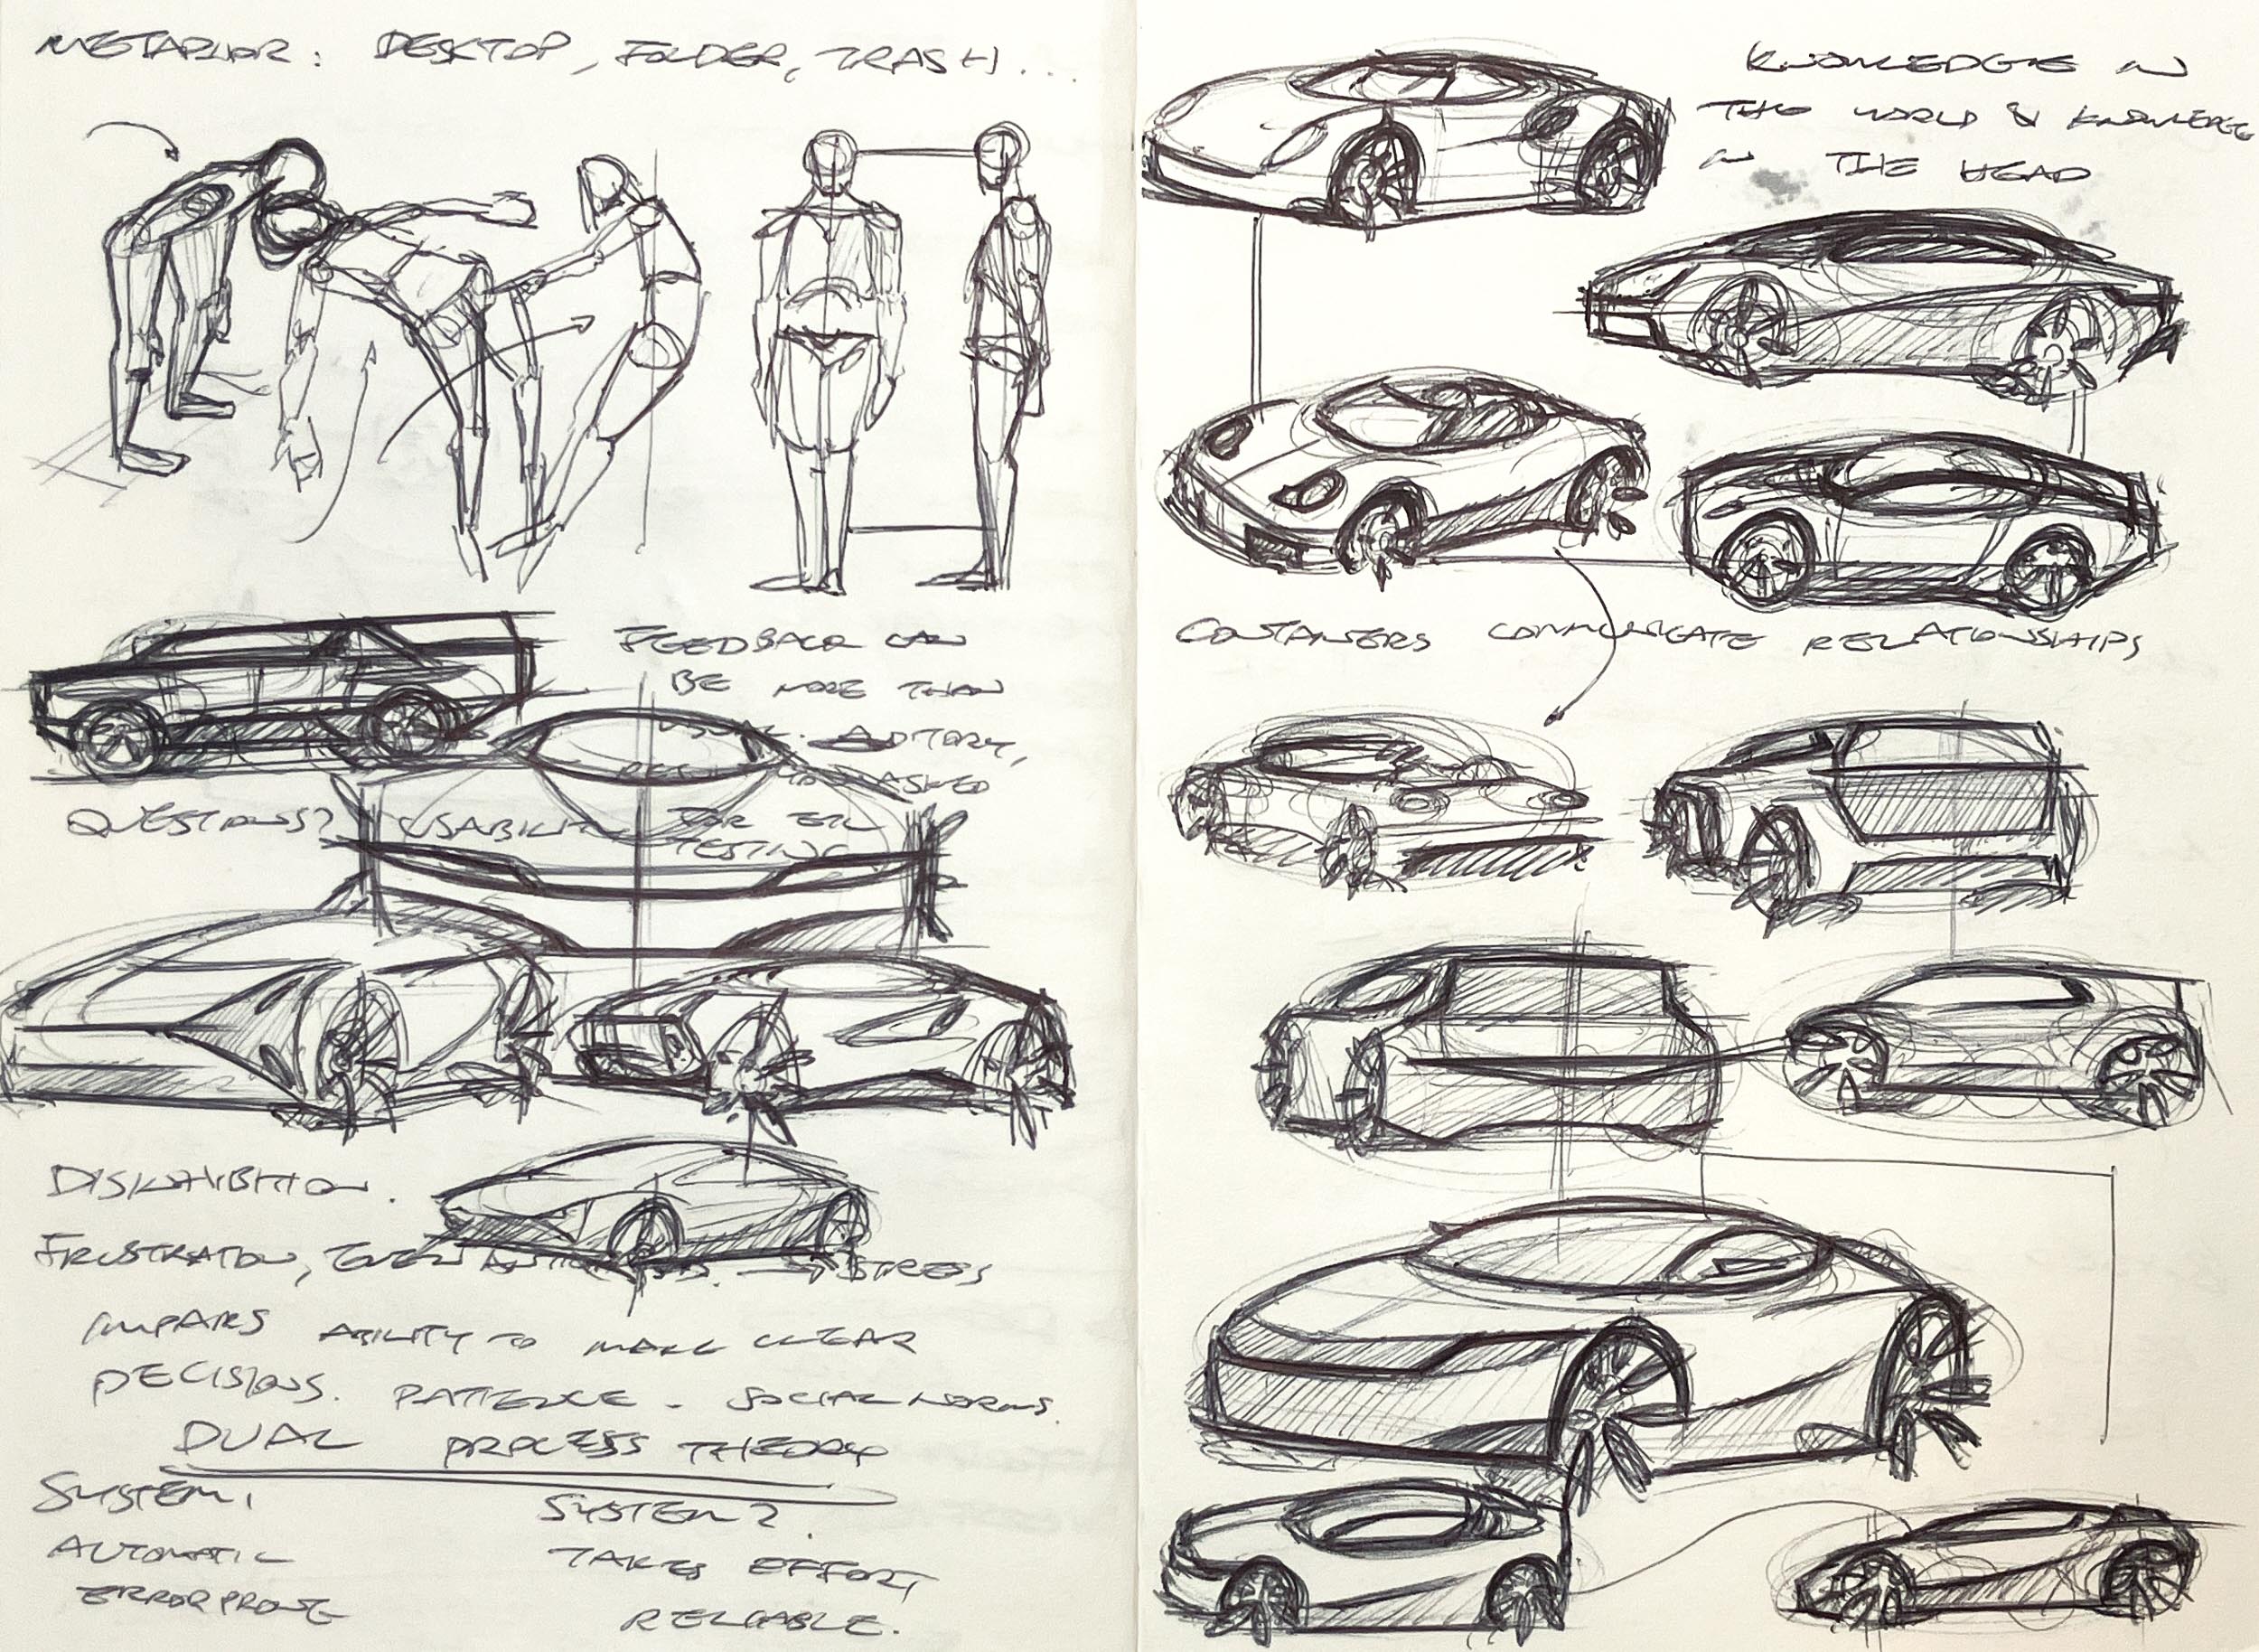 METAPHOR: DESKTOP, FOLDER, TRASH...
FEEDBACK CAN
BE MORE THAN
VISUAL. AUDITORY,
ASKED
QUESTIONS? USABILITY FOR
TESTING
DISINHIBITION.
FRUSTRATION, → STRESS
IMPAIRS ABILITY TO MAKE CLEAR
DECISIONS. PATIENCE - SOCIAL NORMS.
DUAL PROCESS THEORY
SYSTEM 1
AUTOMATIC
ERROR PRONE
SYSTEM 2.
TAKES EFFORT
RELIABLE.
KNOWLEDGE IN
THE WORLD & KNOWLEDGE
IN THE HEAD
CONTAINERS COMMUNICATE RELATIONSHIPS